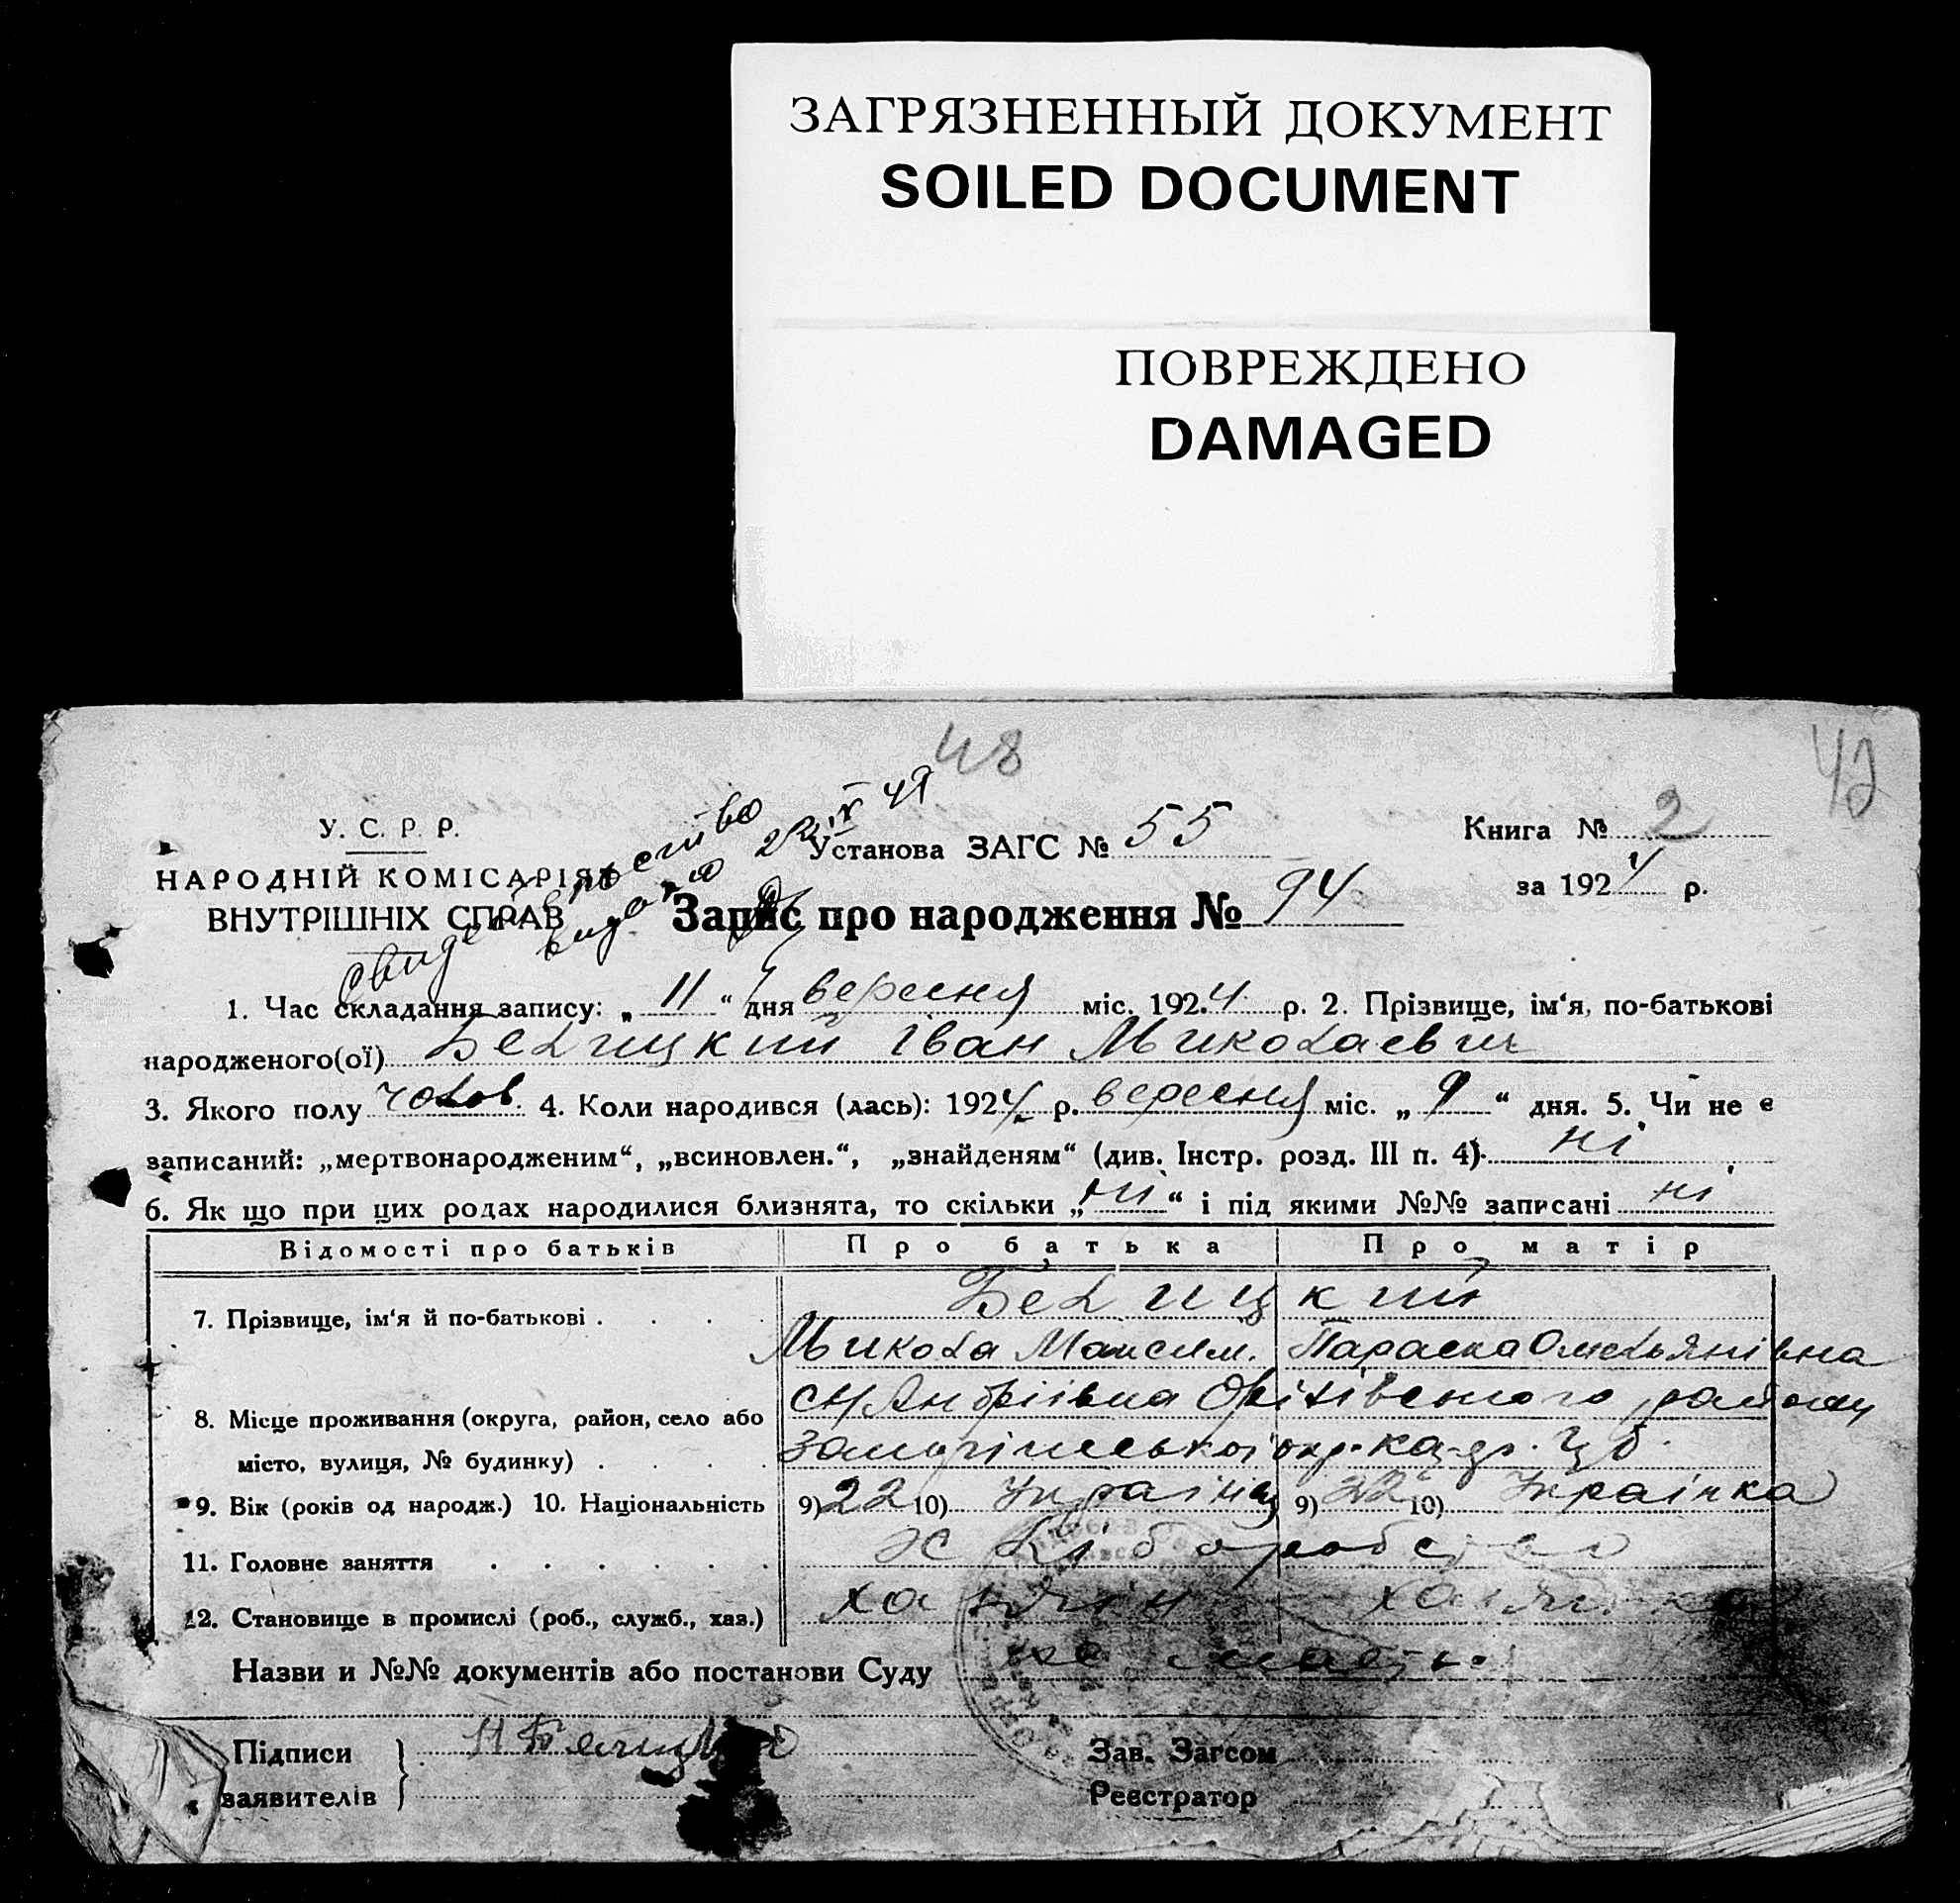 ЗАГРЯЗНЕННЫЙ ДОКУМЕНТ
SOILED DOCUMENT
ПОВРЕЖДЕНО
DAMAGED
48
42
У. С. Р. Р.
НАРОДНІЙ КОМІСАРІЯТ
ВНУТРІШНІХ СПРАВ
свидетельство
видано
Установа ЗАГС № 55
Книга № 2
за 1924 р.
Запис про народження № 94
1. Час складання запису: „ 11 “ дня вересня міс. 1924 р. 2. Прізвище, ім‘я, по-батькові
народженого(ої) Белицкий Іван Миколаевич
3. Якого полу чолов. 4. Коли народився (лась): 1924 р. вересня міс. „ 9 “ дня. 5. Чи не є
записаний: „мертвонародженим“, „всиновлен.“, „знайденям“ (див. Інстр. розд. III п. 4) ні
6. Як що при цих родах народилися близнята, то скільки „ ні “ і під якими №№ записані ні
Відомості про батьків Про батька Про матір
7. Прізвище, ім‘я й по-батькові . . . . Белицкий
Микола Максим. Параска Омельянівна
8. Місце проживання (округа, район, село або Андріівка Оріхівського району
місто, вулиця, № будинку) . . . .
9. Вік (років од народж.) 10. Національність 9) 22 10) Україн‎ец 9) 22 10) Українка
11. Головне заняття . . . . . . хліборобство
12. Становище в промислі (роб., служб., хаз.) хазяін хазяйка
Назви и №№ документів або постанови Суду не мають
Підписи
заявителів
Н Белицкий
Зав. Загсом
Реєстратор